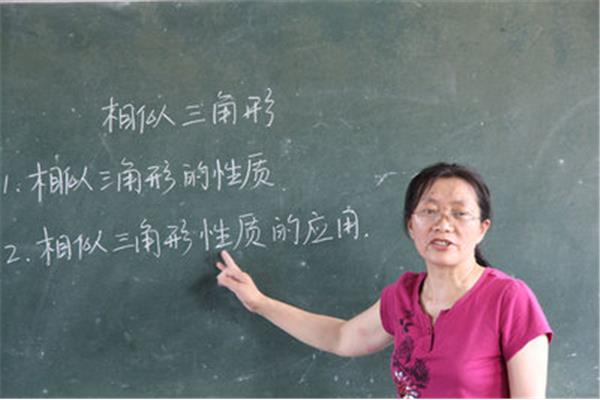 相似三角形
1. 相似三角形的性质.
2. 相似三角形性质的应用.